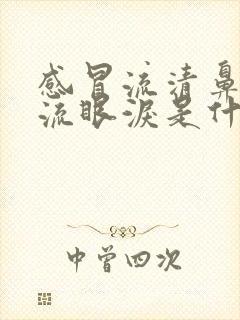 感冒流清鼻
流眼淚是什
中曾四次